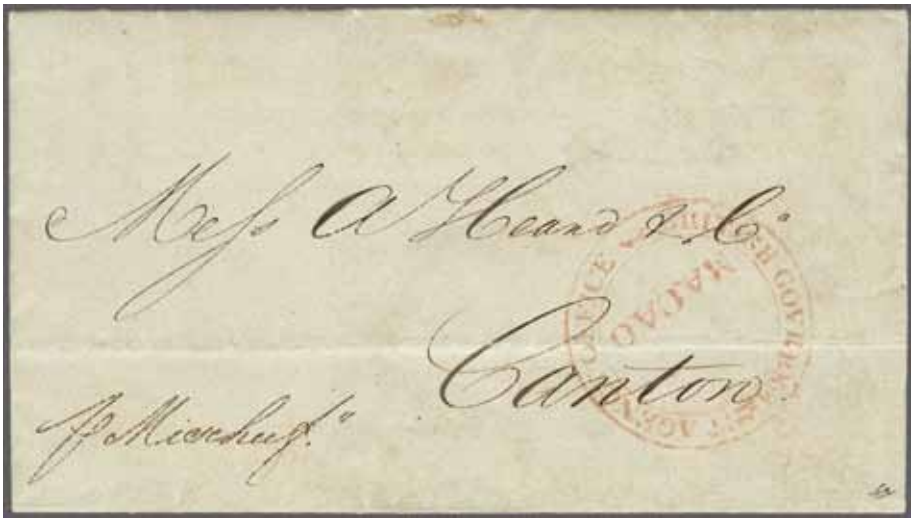 Mess A Heard & Co
Canton
BRITISH GOVERNMENT AGENT OFFICE
MACAO